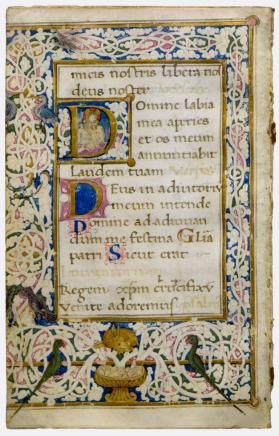 micis nostris libera nos
deus noster
Domine labia
mea apries
et os meum
annuntiabit
Laudem tuam
Deus in adiutoriu
meum intende
Domine ad adiuuan
dum me festina Glia
patri Sicut erat
Regem xpm crucifixu
Venite adoremus